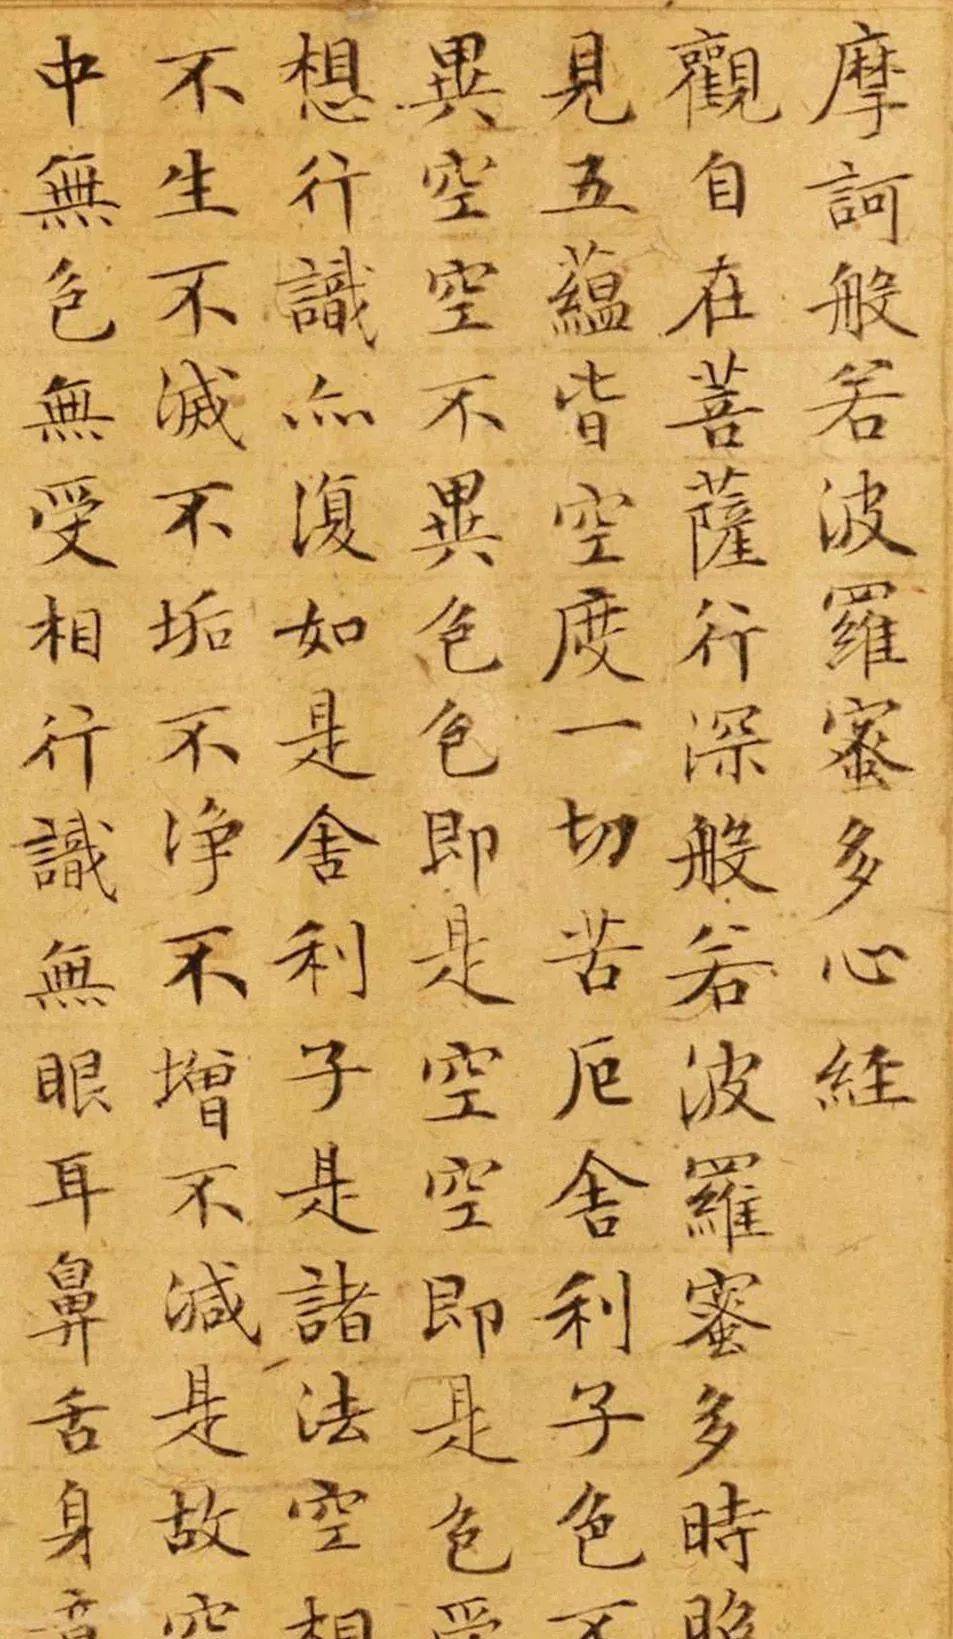 摩訶般若波羅蜜多心経
觀自在菩薩行深般若波羅蜜多時照
見五蘊皆空度一切苦厄舍利子色不
異空空不異色色即是空空即是色受
想行識亦復如是舍利子是諸法空相
不生不滅不垢不净不增不減是故空
中無色無受相行識無眼耳鼻舌身